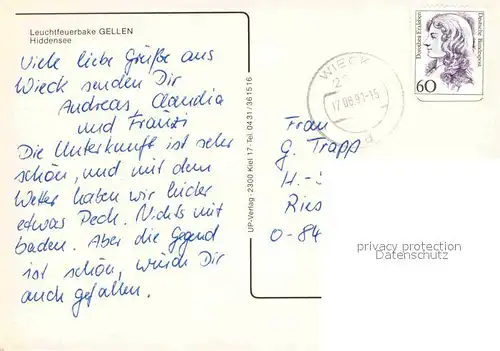 Leuchtfeuerbake GELLEN
Hiddensee
Viele liebe Grüße aus
Wieck senden Dir
Andreas, Claudia
und Franzi
Die Unterkunft ist sehr
schön, und mit dem
Wetter haben wir leider
etwas Pech. Nichts mit
baden. Aber die Gegend
ist schön, würde Dir
auch gefallen.
UP-Verlag · 2300 Kiel 17 Tel. 04 31 / 36 15 16
WIECK
17.08.91-15
Dorothea Erxleben
Deutsche Bundespost
60
Frau
G. Trapp
H.-
Ries
O-84
privacy protection
Datenschutz